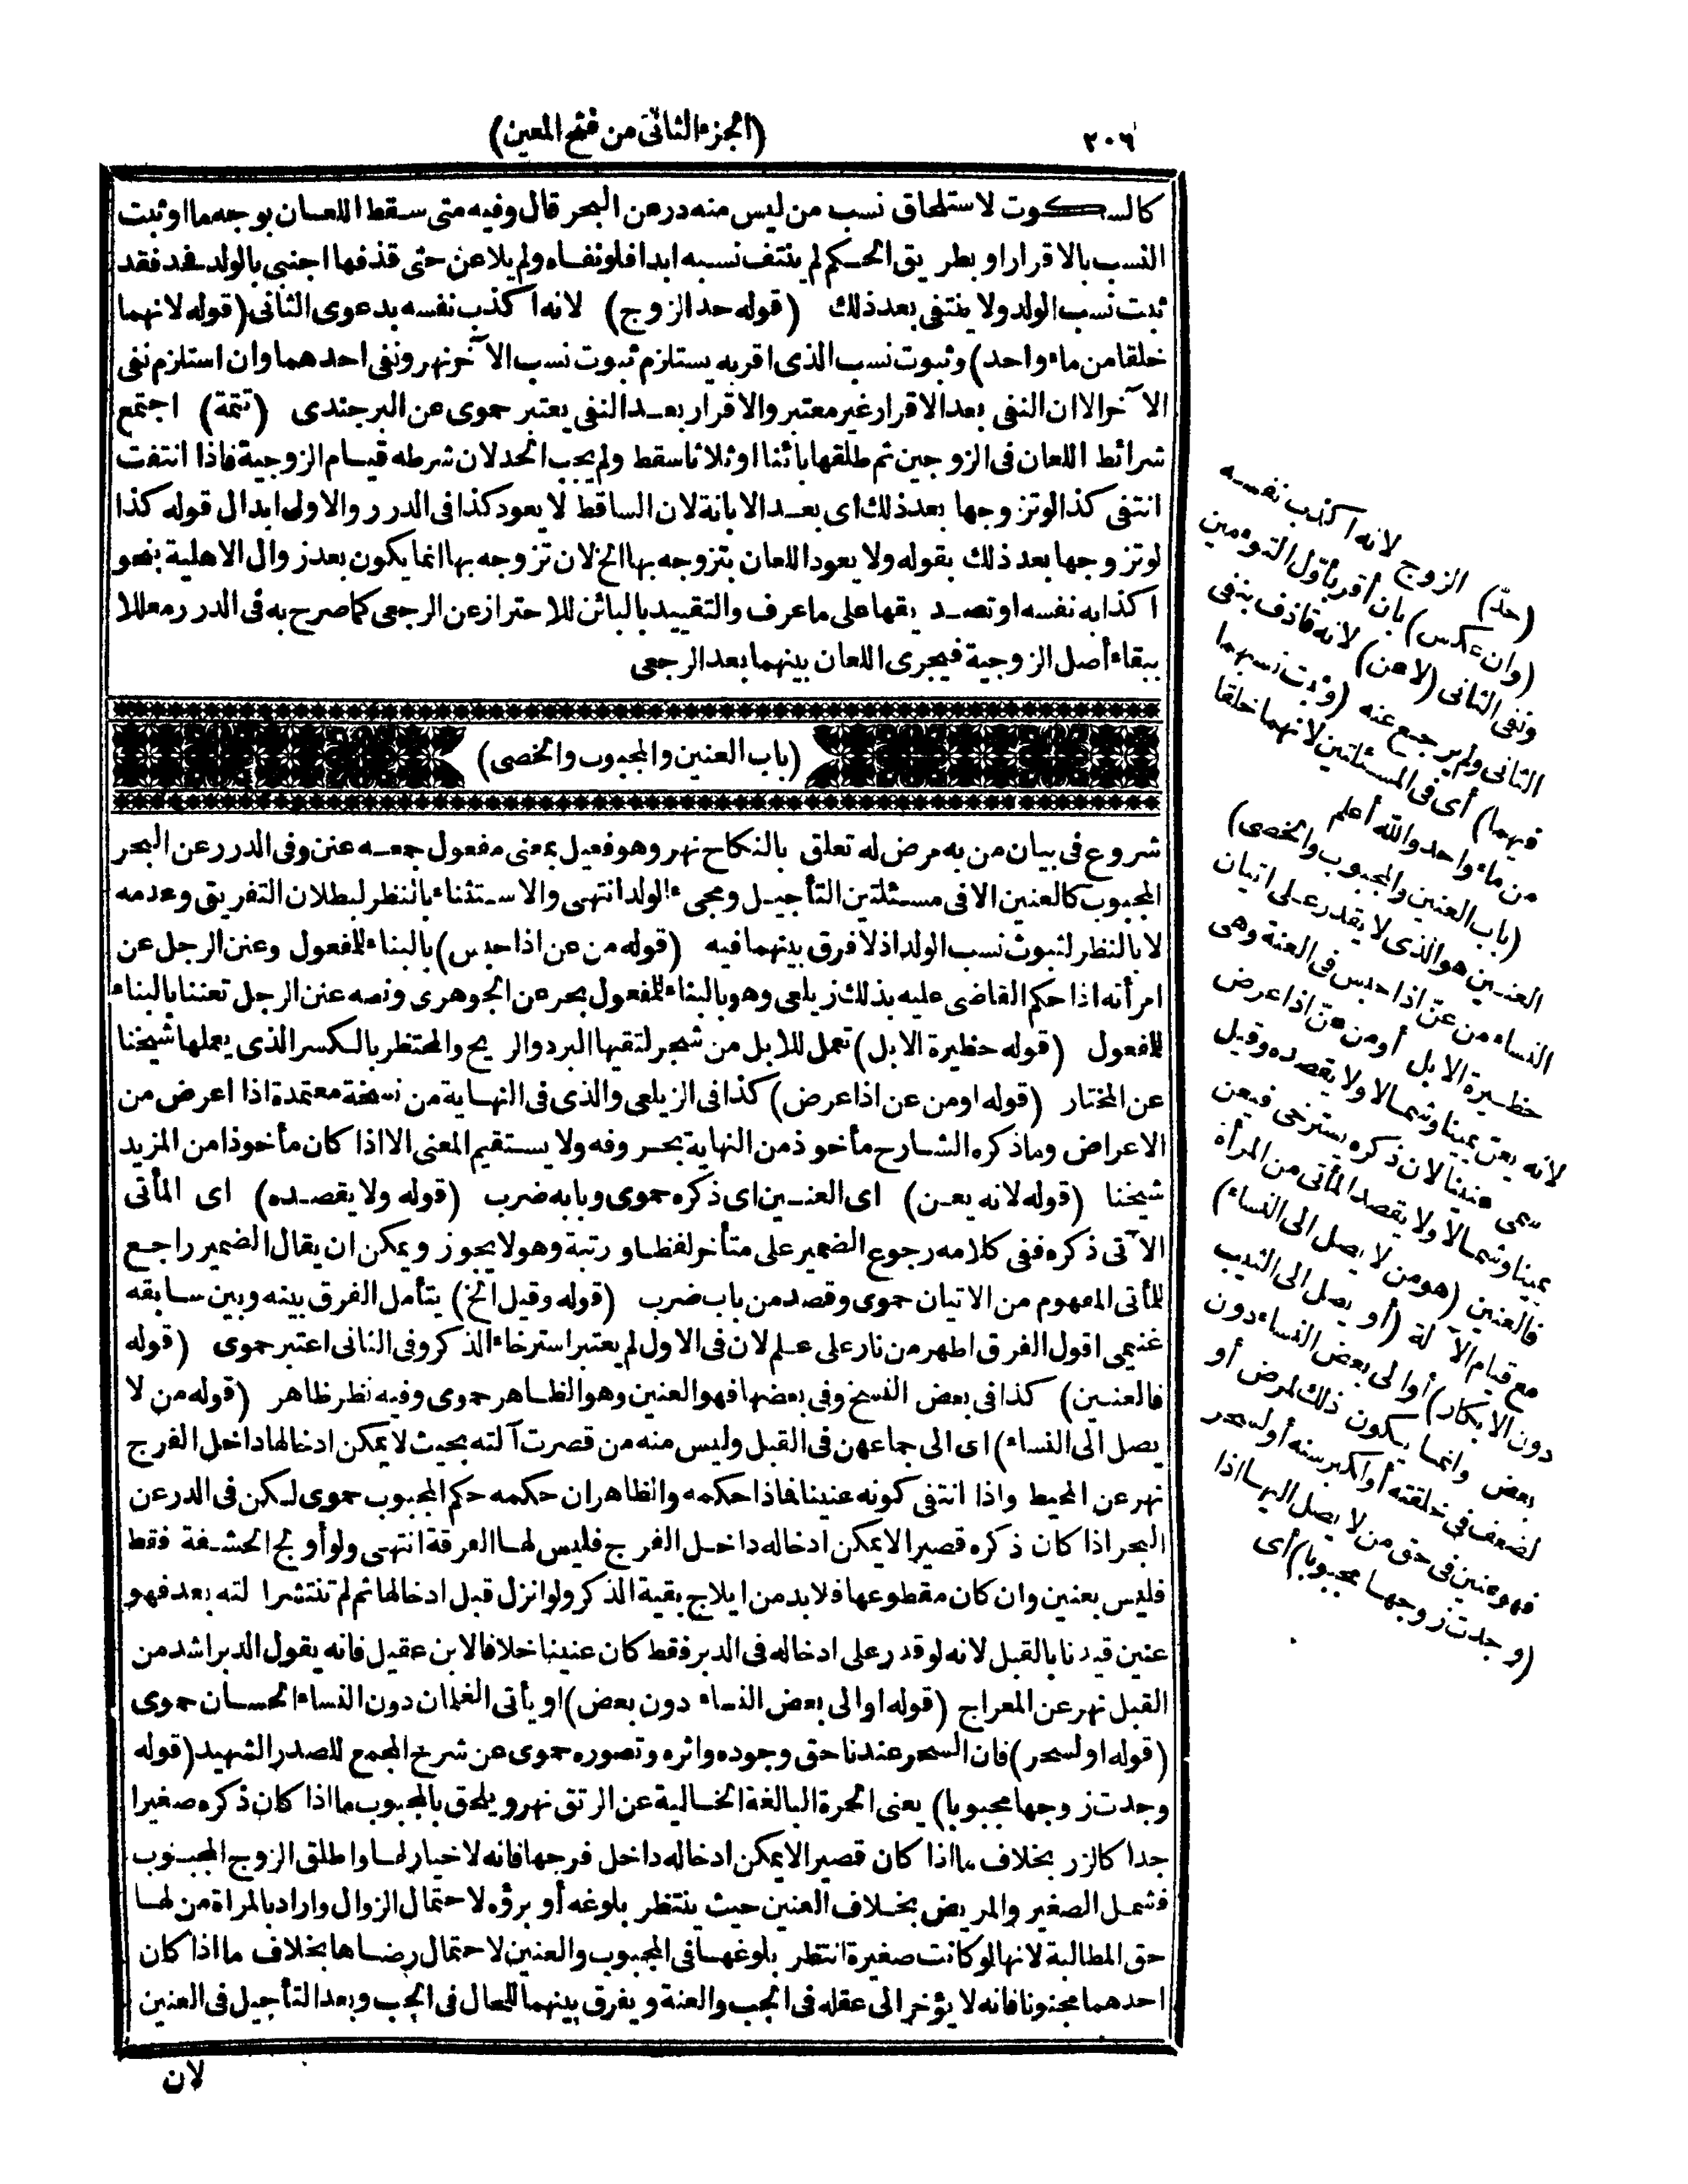 ٢٠٦
(الجزء الثانى من فتح المعين)
كالسكوت لاستلحاق نسب من ليس منه در عن البحر قال وفيه متى سقط اللعان بوجه ما او ثبت
النسب بالاقرار او بطريق الحكم لم ينتف نسبه ابدا فلو نفاه ولم يلاعن حتى قذفها اجنبى بالولد فحد فقد
ثبت نسب الولد ولا ينتفى بعد ذلك (قوله حد الزوج) لانه اكذب نفسه بدعوى الثانى (قوله لانهما
خلقا من ماء واحد) وثبوت نسب الذى اقر به يستلزم ثبوت نسب الآخر نهر ونفى احدهما وان استلزم نفى
الآخر الا ان النفى بعد الاقرار غير معتبر والاقرار بعد النفى يعتبر حموى عن البرجندى (تتمة) اجتمع
شرائط اللعان فى الزوجين ثم طلقها بائنا او ثلاثا سقط ولم يجب الحد لان شرطه قيام الزوجية فاذا انتفت
انتفى كذا لو تزوجها بعد ذلك اى بعد الابانة لان الساقط لا يعود كذا فى الدرر والاولى ابدال قوله كذا
لو تزوجها بعد ذلك بقوله ولا يعود اللعان بتزوجه بها الخ لان تزوجه بها انما يكون بعد زوال الاهلية بنحو
اكذابه نفسه او تصديقها على ما عرف والتقييد بالبائن للاحتراز عن الرجعى كما صرح به فى الدرر معللا
ببقاء أصل الزوجية فيجرى اللعان بينهما بعد الرجعى
(باب العنين والمجبوب والخصى)
شروع فى بيان من به مرض له تعلق بالنكاح نهر وهو فعيل بمعنى مفعول جمعه عنن وفى الدرر عن البحر
المجبوب كالعنين الا فى مسئلتين التأجيل ومجىء الولد انتهى والاستثناء بالنظر لبطلان التفريق وعدمه
لا بالنظر لثبوت نسب الولد اذ لا فرق بينهما فيه (قوله من عن اذا حبس) بالبناء للمفعول وعنن الرجل عن
امرأته اذا حكم القاضى عليه بذلك زيلعى وهو بالبناء للمفعول بحر عن الجوهرى ونصه عنن الرجل تعنينا بالبناء
للمفعول (قوله حظيرة الابل) تعمل للابل من شجر لتقيها البرد والريح والمحتظر بالكسر الذى يعملها شيخنا
عن المختار (قوله او من عن اذا عرض) كذا فى الزيلعى والذى فى النهاية من نسخة معتمدة اذا اعرض من
الاعراض وما ذكره الشارح مأخوذ من النهاية بحروفه ولا يستقيم المعنى الا اذا كان مأخوذا من المزيد
شيخنا (قوله لانه يعن) اى العنين اى ذكره حموى وبابه ضرب (قوله ولا يقصده) اى المأتى
الآتى ذكره ففى كلامه رجوع الضمير على متأخر لفظا ورتبة وهو لا يجوز ويمكن ان يقال الضمير راجع
للمأتى المفهوم من الاتيان حموى وقصد من باب ضرب (قوله وقيل الخ) يتأمل الفرق بينه وبين سابقه
غنيمى اقول الفرق اظهر من نار على علم لان فى الاول لم يعتبر استرخاء الذكر وفى الثانى اعتبر حموى (قوله
فالعنين) كذا فى بعض النسخ وفى بعضها فهو العنين وهو الظاهر حموى وفيه نظر ظاهر (قوله من لا
يصل الى النساء) اى الى جماعهن فى القبل وليس منه من قصرت آلته بحيث لا يمكن ادخالها داخل الفرج
نهر عن المحيط واذا انتفى كونه عنينا فماذا حكمه والظاهر ان حكمه حكم المجبوب حموى لكن فى الدر عن
البحر اذا كان ذكره قصيرا لا يمكن ادخاله داخل الفرج فليس لها الفرقة انتهى ولو أولج الحشفة فقط
فليس بعنين وان كان مقطوعها فلا بد من ايلاج بقية الذكر ولو انزل قبل ادخالها ثم لم تنتشر الته بعد فهو
عنين قيدنا بالقبل لانه لو قدر على ادخاله فى الدبر فقط كان عنينا خلافا لابن عقيل فانه يقول الدبر اشد من
القبل نهر عن المعراج (قوله او الى بعض النساء دون بعض) او يأتى الغلمان دون النساء الحسان حموى
(قوله او لسحر) فان السحر عندنا حق وجوده واثره وتصوره حموى عن شرح المجمع للصدر الشهيد (قوله
وجدت زوجها مجبوبا) يعنى الحرة البالغة الخالية عن الرتق نهر ويلحق بالمجبوب ما اذا كان ذكره صغيرا
جدا كالزر بخلاف ما اذا كان قصيرا لا يمكن ادخاله داخل فرجها فانه لا خيار لها واطلق الزوج المجبوب
فشمل الصغير والمريض بخلاف العنين حيث ينتظر بلوغه أو برؤه لاحتمال الزوال واراد بالمراة من لها
حق المطالبة لانها لو كانت صغيرة انتظر بلوغها فى المجبوب والعنين لاحتمال رضاها بخلاف ما اذا كان
احدهما مجنونا فانه لا يؤخر الى عقله فى الجب والعنة ويفرق بينهما للحال فى الجب وبعد التأجيل فى العنين
لان
(حدّ) الزوج لانه اكذب نفسه
(وان عكس) بان أقر بأوّل التوءمين
ونفى الثانى (لاعن) لانه قاذف بنفى
الثانى ولم يرجع عنه (وثبت نسبهما
فيهما) أى فى المسئلتين لانهما خلقا
من ماء واحد والله أعلم
(باب العنين والمجبوب والخصى)
العنين هو الذى لا يقدر على اتيان
النساء من عنّ اذا حبس فى العنة وهى
حظيرة الابل أو من عنّ اذا عرض
لانه يعنّ يمينا وشمالا ولا يقصده وقيل
سمى عنينا لان ذكره يسترخى فيعن
يمينا وشمالا ولا يقصد المأتى من المرأة
فالعنين (هو من لا يصل الى النساء)
مع قيام الآلة (أو يصل الى الثيب
دون الابكار) أو الى بعض النساء دون
بعض وانما يكون ذلك لمرض أو
لضعف فى خلقته أو لكبر سنه أو لسحر
فهو عنين فى حق من لا يصل اليها اذا
(وجدت زوجها مجبوبا) أى